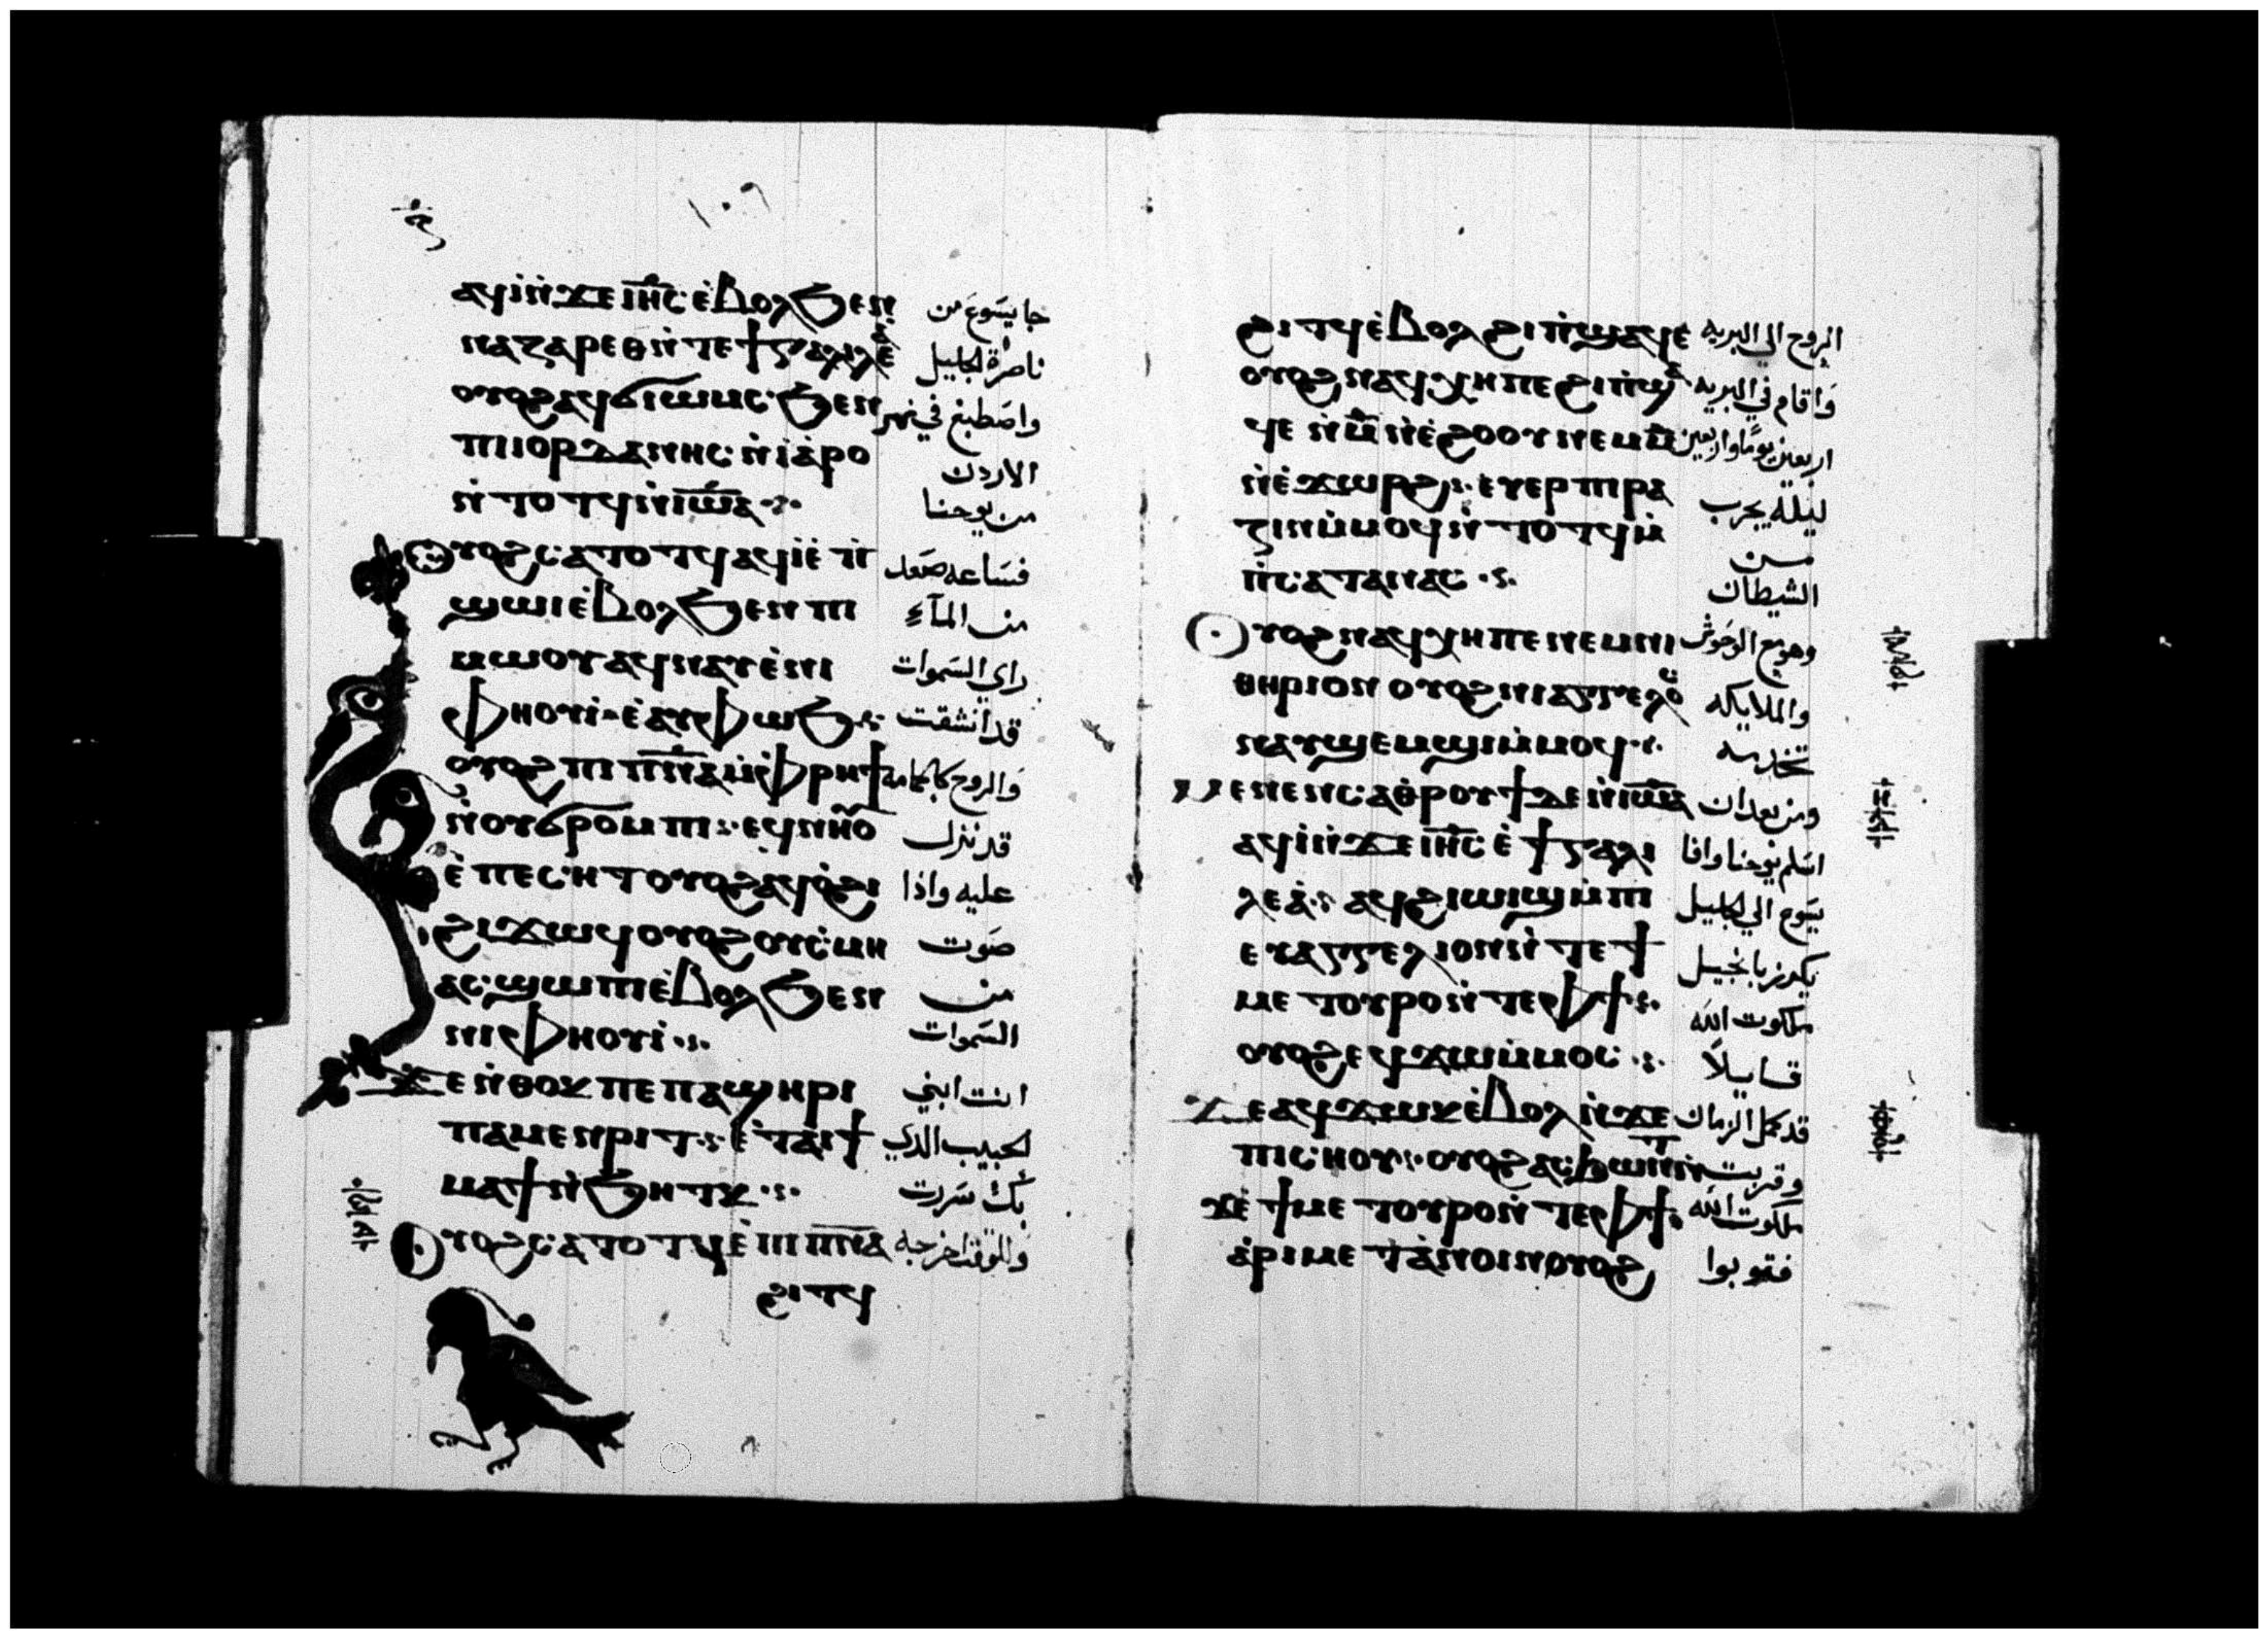 ١٠٦
ⲁϥⲓ̀ⲛ̀ϫⲉⲓⲏ̅ⲥ̅ ⲉ̀ⲃⲟⲗϧⲉⲛ جا يسَوعَ من
ⲛⲁⲍⲁⲣⲉⲑⲛ̀ⲧⲉϯⲅⲁⲗⲓⲗⲉ̀ⲁ ناصرة الجليل
ⲟⲩⲟϩⲁϥϭⲓⲱⲙⲥ ϧⲉⲛ واصَطبغ في نهر
ⲡⲓⲓⲟⲣⲇⲁⲛⲏⲥ ⲛ̀ⲓⲁ̀ⲣⲟ الاردن
ⲛ̀ⲧⲟⲧϥⲛ̀ⲓⲱ̅ⲁ̅ من يوحنا
ⲟⲩⲟϩⲥⲁⲧⲟⲧϥⲁϥⲓ̀ⲉ̀ⲡ̀ فسَاعه صَعد
ϣⲱⲓⲉ̀ⲃⲟⲗϧⲉⲛⲡⲓ من المآءِ
ⲙⲱⲟⲩⲁϥⲛⲁⲩⲉ̀ⲛⲓ راي السَموات
ⲫⲏⲟⲩⲓ̀ ⲉ̀ⲁⲩⲫⲱϧ قد انشقت
ⲟⲩⲟϩⲡⲓⲡ̅ⲛ̅ⲁ̅ⲙ̀ⲫⲣⲏϯ والروح كالحمامه
ⲛ̀ⲟⲩϭⲣⲟⲙⲡⲓ ⲉϥⲛⲏⲟⲩ قد نزل
ⲉ̀ⲡⲉⲥⲏⲧⲟⲩⲟϩⲁϥⲟ̀ϩⲓ عليه واذا
ϩⲓϫⲱϥⲟⲩⲟϩⲟⲩⲥ̀ⲙⲏ صَوت
ⲁⲥϣⲱⲡⲓⲉ̀ⲃⲟⲗϧⲉⲛ من
ⲛⲓⲫⲏⲟⲩⲓ̀ السَموات
ϫⲉⲛ̀ⲑⲟⲕⲡⲉⲡⲁϣⲏⲣⲓ انت ابني
ⲡⲁⲙⲉⲛⲣⲓⲧ ⲉ̀ⲧⲁⲓϯ الحبيب الذي
ⲙⲁϯⲛ̀ϧⲏⲧⲕ بك سَررت
ⲟⲩⲟϩⲥⲁⲧⲟⲧϥⲉ̀ⲡⲓⲡ̅ⲛ̅ⲁ̅ وللوقت اخرجه
ϩⲓⲧϥ
ϩⲓⲧϥⲉ̀ⲃⲟⲗϩⲓⲡ̀ϣⲁϥⲉ الروح الي البريه
ⲟⲩⲟϩⲛⲁϥⲭⲏⲡⲉϩⲓⲡ̀ϣⲁ وَاقام في البريه
ϥⲉⲛ̀ⲙ̅ⲛ̀ⲉ̀ϩⲟⲟⲩⲛⲉⲙⲙ̅ اربعين يومًا واربعين
ⲛ̀ⲉ̀ϫⲱⲣϩ ⲉⲩⲉⲣⲡⲓⲣⲁ ليله يجرب
ⲍⲓⲛⲙ̀ⲙⲟϥⲛ̀ⲧⲟⲧϥⲙ̀ مـن
ⲡ̀ⲥⲁⲧⲁⲛⲁⲥ الشيطان
ⲟⲩⲟϩⲛⲁϥⲭⲏⲡⲉⲛⲉⲙⲛⲓ وهو مع الوحَوش
ⲑⲏⲣⲓⲟⲛⲟⲩⲟϩⲛⲓⲁⲅⲅⲉⲗⲟⲥ والملايكه
ⲛⲁⲩϣⲉⲙϣⲓⲙ̀ⲙⲟϥ تخدمه
ⲙⲉⲛⲉⲛⲥⲁⲑ̀ⲣⲟⲩϯⲇⲉⲛ̀ⲓⲱ̅ⲁ̅ ومن بعد ان
ⲁϥⲓ̀ⲛ̀ϫⲉⲓⲏ̅ⲥ̅ ⲉ̀ϯⲅⲁⲗⲓ اسَلم يوحنا وافا
ⲗⲉⲁ̀ ⲁϥϩⲓⲱⲓϣⲙ̀ⲡⲓ يسَوع الي الجليل
ⲉⲩⲁⲅⲅⲉⲗⲓⲟⲛⲛ̀ⲧⲉϯ يكرز بانجيل
ⲙⲉⲧⲟⲩⲣⲟⲛ̀ⲧⲉⲫϯ ملكوت الله
ⲟⲩⲟϩⲉϥϫⲱⲙ̀ⲙⲟⲥ قايلاً
ϫⲉⲁϥϫⲱⲕⲉ̀ⲃⲟⲗⲛ̀ϫⲉ قد كمل الزمان
ⲡⲓⲥⲏⲟⲩ ⲟⲩⲟϩⲁⲥϧⲱⲛⲧⲛ̀ وقربت
ϫⲉ̀ϯⲙⲉⲧⲟⲩⲣⲟⲛ̀ⲧⲉⲫϯ ملكوت الله
ⲁ̀ⲣⲓⲙⲉⲧⲁ̀ⲛⲟⲓⲛⲟⲩⲟϩ فتوبوا